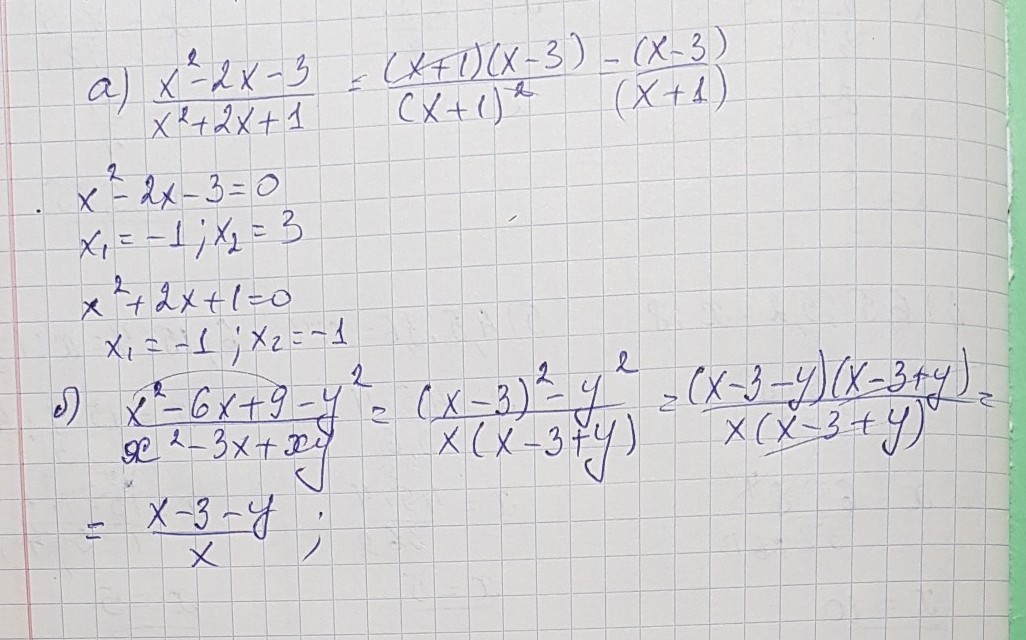 а) (x²-2x-3)/(x²+2x+1) = ((x+1)(x-3))/((x+1)²) - (x-3)/(x+1)
x²-2x-3=0
x₁=-1; x₂=3
x²+2x+1=0
x₁=-1; x₂=-1
б) (x²-6x+9-y²)/(x²-3x+xy) = ((x-3)²-y²)/(x(x-3+y)) = ((x-3-y)(x-3+y))/(x(x-3+y)) =
= (x-3-y)/x ;